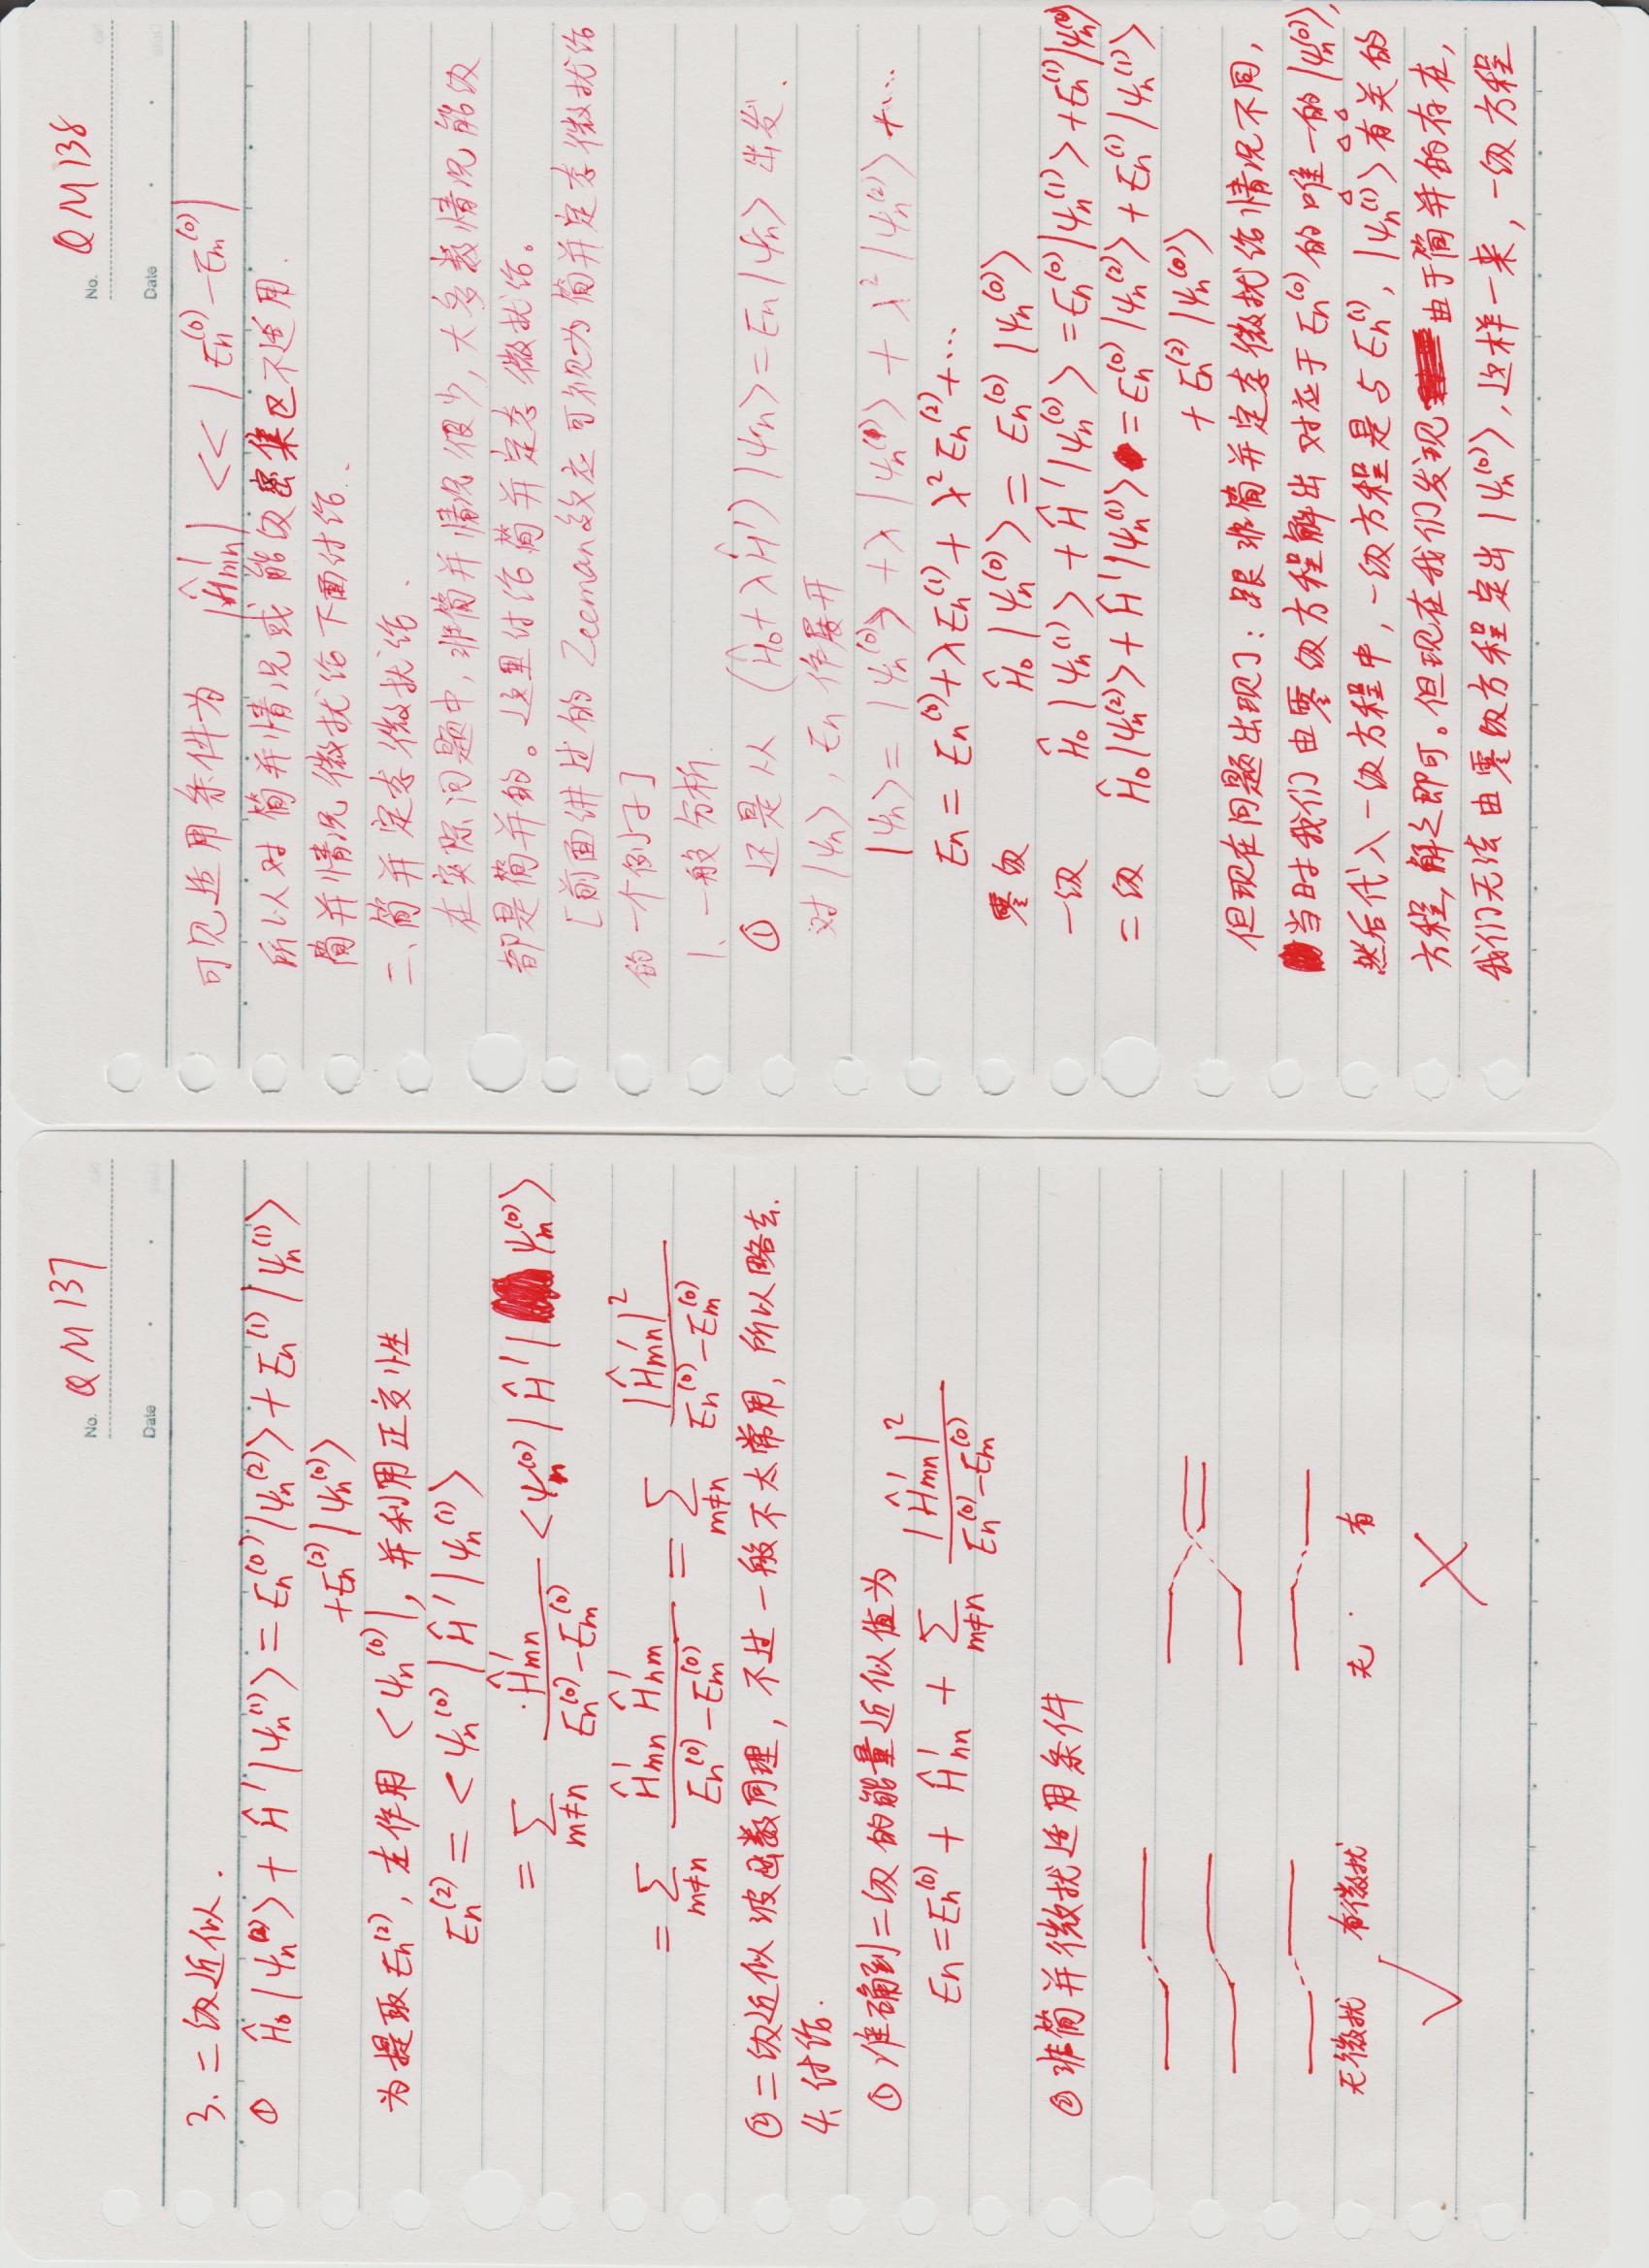 No. QM 137
Date
3、二级近似.
① Ĥ₀|ψₙ⁽²⁾⟩ + Ĥ′|ψₙ⁽¹⁾⟩ = Eₙ⁽⁰⁾|ψₙ⁽²⁾⟩ + Eₙ⁽¹⁾|ψₙ⁽¹⁾⟩
+Eₙ⁽²⁾|ψₙ⁽⁰⁾⟩
为提取Eₙ⁽²⁾, 左作用 <ψₙ⁽⁰⁾|, 并利用正交性
Eₙ⁽²⁾ = <ψₙ⁽⁰⁾|Ĥ′|ψₙ⁽¹⁾⟩
= ∑_{m≠n} Ĥ′ₘₙ / (Eₙ⁽⁰⁾−Eₘ⁽⁰⁾) <ψₙ⁽⁰⁾|Ĥ′|ψₘ⁽⁰⁾⟩
= ∑_{m≠n} Ĥ′ₘₙ Ĥ′ₙₘ / (Eₙ⁽⁰⁾−Eₘ⁽⁰⁾) = ∑_{m≠n} |Ĥ′ₘₙ|² / (Eₙ⁽⁰⁾−Eₘ⁽⁰⁾)
②二级近似波函数同理, 不过一般不太常用, 所以略去.
4、讨论.
① 准确到二级的能量近似值为
Eₙ = Eₙ⁽⁰⁾ + Ĥ′ₙₙ + ∑_{m≠n} |Ĥ′ₘₙ|² / (Eₙ⁽⁰⁾−Eₘ⁽⁰⁾)
② 非简并微扰适用条件
无微扰 有微扰 无 有
No. QM 138
Date
可见适用条件为 |Ĥ′ₘₙ| << |Eₙ⁽⁰⁾−Eₘ⁽⁰⁾|
所以对简并情况或能级密集区不适用.
简并情况微扰论下面讨论.
二、简并定态微扰论.
在实际问题中, 非简并情况很少, 大多数情况能级
都是简并的。这里讨论简并定态微扰论。
[前面讲过的Zeeman效应可视为简并定态微扰论
的一个例子]
1、一般分析.
① 还是从 (Ĥ₀+λĤ′)|ψₙ⟩=Eₙ|ψₙ⟩ 出发.
对|ψₙ⟩, Eₙ 作展开
|ψₙ⟩ = |ψₙ⁽⁰⁾⟩ + λ|ψₙ⁽¹⁾⟩ + λ²|ψₙ⁽²⁾⟩ + ...
Eₙ = Eₙ⁽⁰⁾ + λEₙ⁽¹⁾ + λ²Eₙ⁽²⁾ + ...
零级 Ĥ₀|ψₙ⁽⁰⁾⟩ = Eₙ⁽⁰⁾|ψₙ⁽⁰⁾⟩
一级 Ĥ₀|ψₙ⁽¹⁾⟩ + Ĥ′|ψₙ⁽⁰⁾⟩ = Eₙ⁽⁰⁾|ψₙ⁽¹⁾⟩ + Eₙ⁽¹⁾|ψₙ⁽⁰⁾⟩
二级 Ĥ₀|ψₙ⁽²⁾⟩ + Ĥ′|ψₙ⁽¹⁾⟩ = Eₙ⁽⁰⁾|ψₙ⁽²⁾⟩ + Eₙ⁽¹⁾|ψₙ⁽¹⁾⟩
+ Eₙ⁽²⁾|ψₙ⁽⁰⁾⟩
但现在问题出现了: 跟非简并定态微扰论情况不同,
当时我们由零级方程解出对应于Eₙ⁽⁰⁾的唯一的|ψₙ⁽⁰⁾⟩,
然后代入一级方程中, 一级方程是与Eₙ⁽¹⁾, |ψₙ⁽¹⁾⟩有关的
方程, 解之即可。但现在我们发现由于简并的存在,
我们无法由零级方程定出|ψₙ⁽⁰⁾⟩, 这样一来, 一级方程